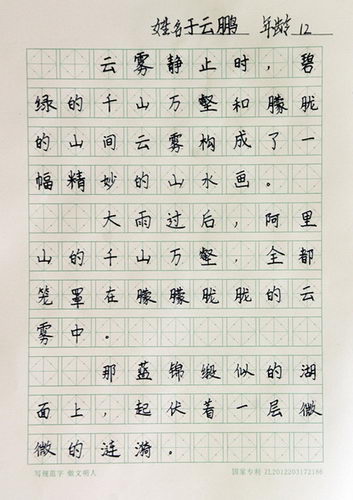 姓名于云鹏 年龄12
云雾静止时，碧
绿的千山万壑和朦胧
的山间云雾构成了一
幅精妙的山水画。
大雨过后，阿里
山的千山万壑，全都
笼罩在朦朦胧胧的云
雾中。
那蓝锦缎似的湖
面上，起伏着一层微
微的涟漪。
写规范字 做文明人 国家专利 ZL2012203172186